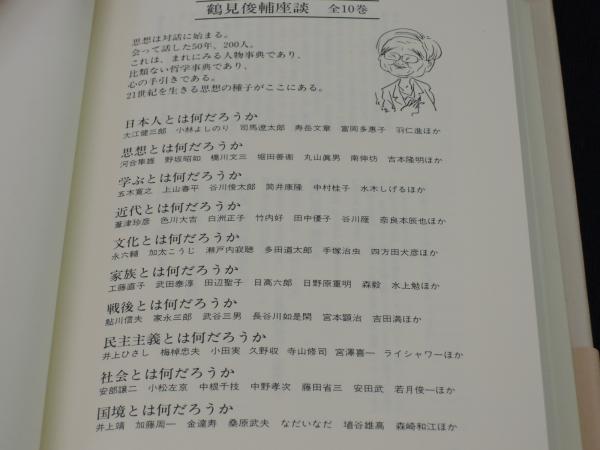 鶴見俊輔座談 全10巻
思想は対話に始まる。
会って話した50年、200人。
これは、まれにみる人物事典であり、
比類ない哲学事典であり、
心の手引きである。
21世紀を生きる思想の種子がここにある。
日本人とは何だろうか
大江健三郎 小林よしのり 司馬遼太郎 寿岳文章 富岡多惠子 羽仁進ほか
思想とは何だろうか
河合隼雄 野坂昭如 橋川文三 堀田善衞 丸山眞男 南伸坊 吉本隆明ほか
学ぶとは何だろうか
五木寛之 上山春平 谷川俊太郎 筒井康隆 中村桂子 水木しげるほか
近代とは何だろうか
葦津珍彦 色川大吉 白洲正子 竹内好 田中優子 谷川雁 奈良本辰也ほか
文化とは何だろうか
永六輔 加太こうじ 瀬戸内寂聴 多田道太郎 手塚治虫 四方田犬彦ほか
家族とは何だろうか
工藤直子 武田泰淳 田辺聖子 日高六郎 日野原重明 森毅 水上勉ほか
戦後とは何だろうか
鮎川信夫 家永三郎 武谷三男 長谷川如是閑 宮本顕治 吉田満ほか
民主主義とは何だろうか
井上ひさし 梅棹忠夫 小田実 久野収 寺山修司 宮澤喜一 ライシャワーほか
社会とは何だろうか
安部譲二 小松左京 中根千枝 中野孝次 藤田省三 安田武 若月俊一ほか
国境とは何だろうか
井上靖 加藤周一 金達寿 桑原武夫 なだいなだ 埴谷雄高 森崎和江ほか